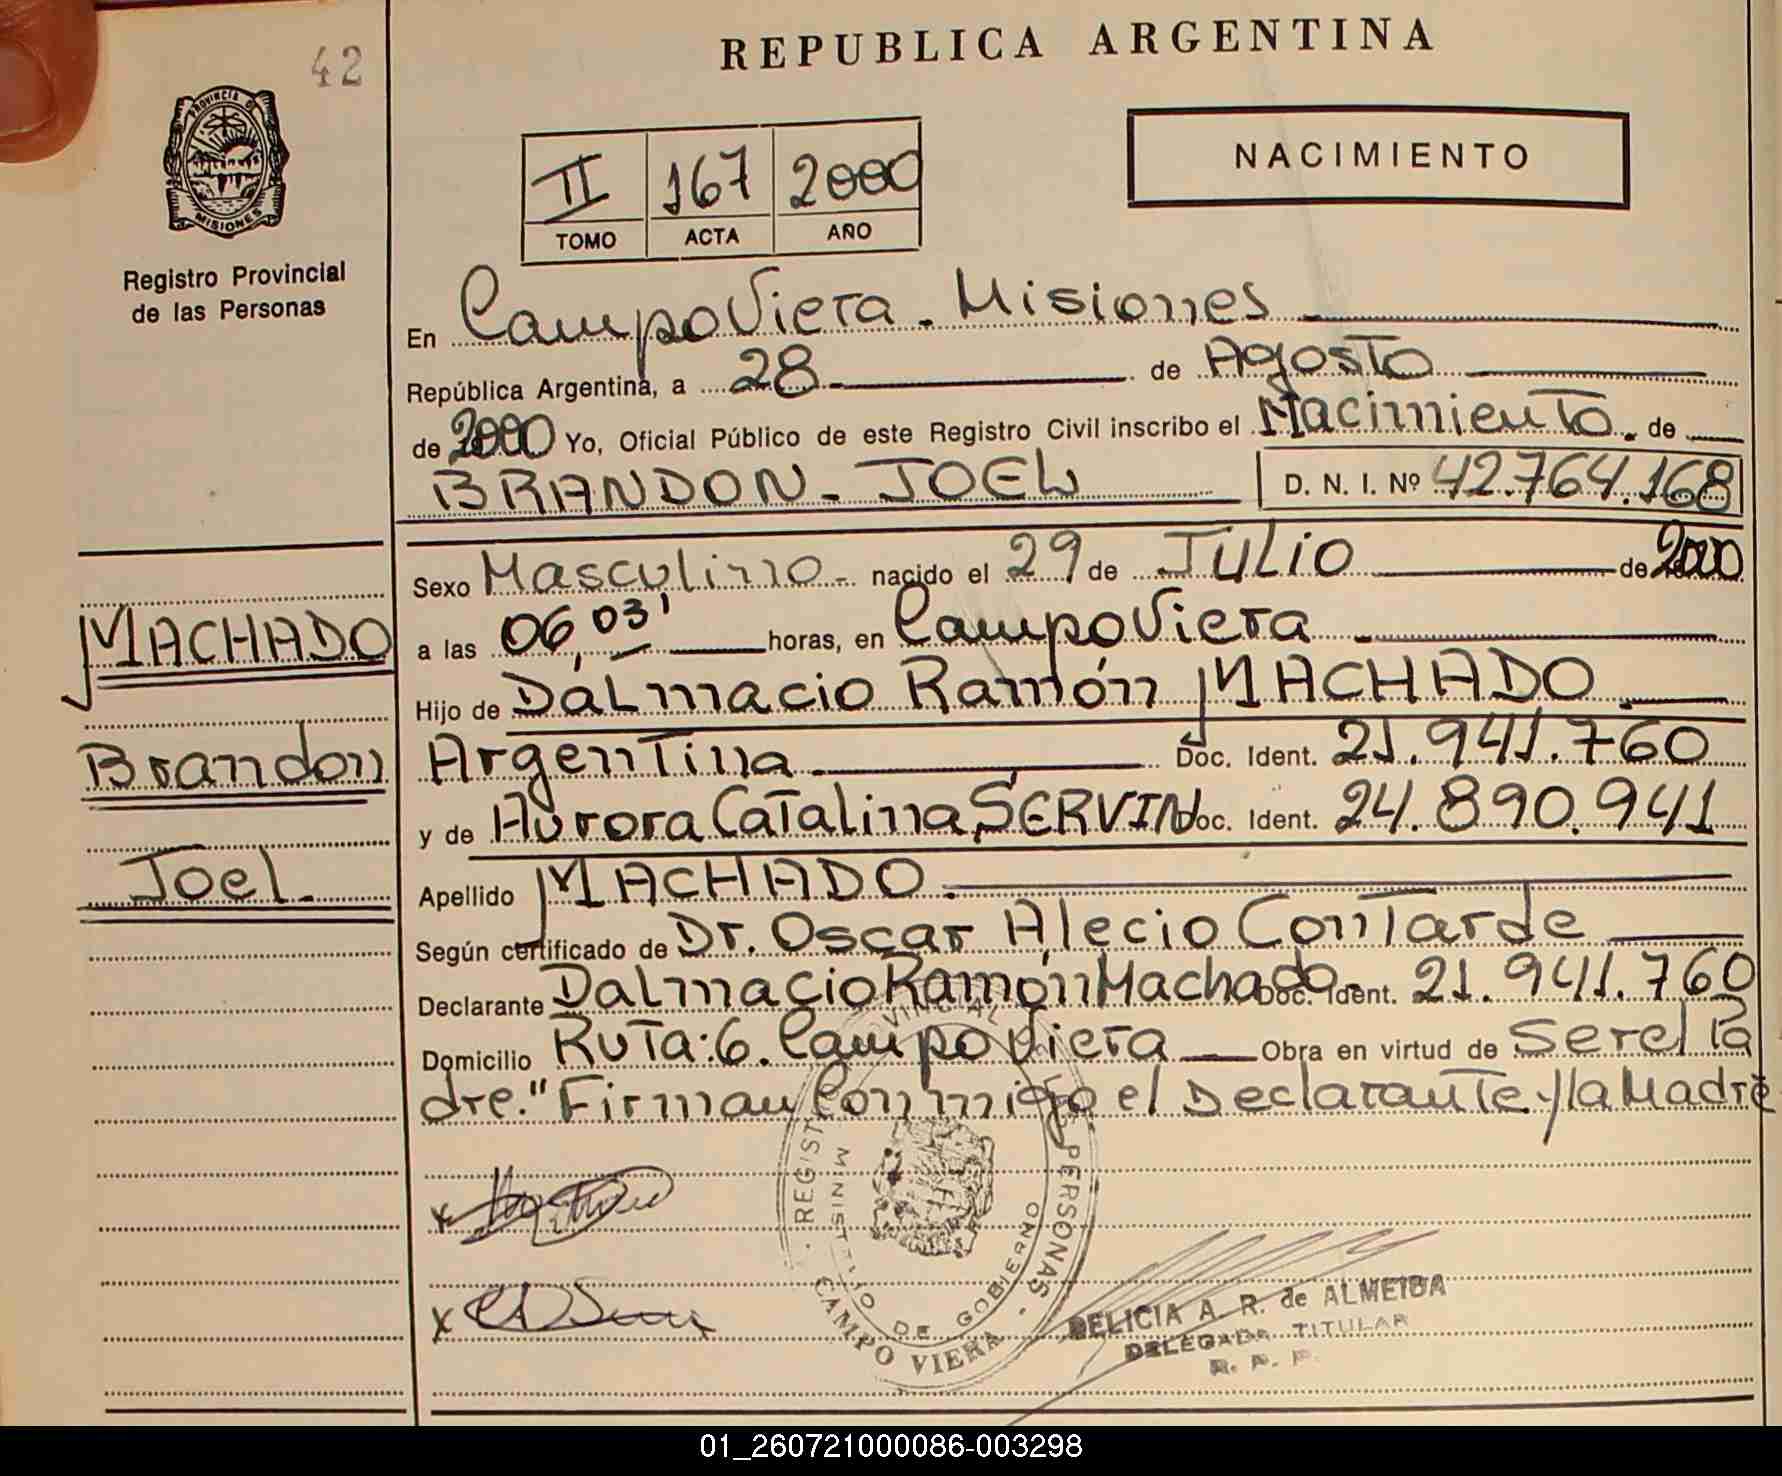 42
REPUBLICA ARGENTINA
PROVINCIA DE
MISIONES
Registro Provincial
de las Personas
II 167 2000
TOMO ACTA AÑO
NACIMIENTO
En Campo Viera - Misiones
República Argentina, a 28 de Agosto
de 2000 Yo, Oficial Público de este Registro Civil inscribo el Nacimiento de
BRANDON - JOEL D. N. I. Nº 42.764.168
Sexo Masculino - nacido el 29 de JULIO de 2000
a las 06,03' horas, en Campo Viera
Hijo de Dalmacio Ramón MACHADO
Argentina Doc. Ident. 21.941.760
y de Aurora Catalina SERVIN Doc. Ident. 24.890.941
Apellido MACHADO
Según certificado de Dr. Oscar Alecio Contarde
Declarante Dalmacio Ramón Machado Doc. Ident. 21.941.760
Domicilio Ruta: 6. Campo Viera Obra en virtud de Ser el Pa
dre." Firman Conmigo el Declarante y la Madre
MACHADO
Brandon
Joel.
REGIST VINCIAL PERSONAS
MINISTERIO DE GOBIERNO
CAMPO VIERA
DELICIA A. R. de ALMEIDA
DELEGADA TITULAR
R. P. P.
01_260721000086-003298